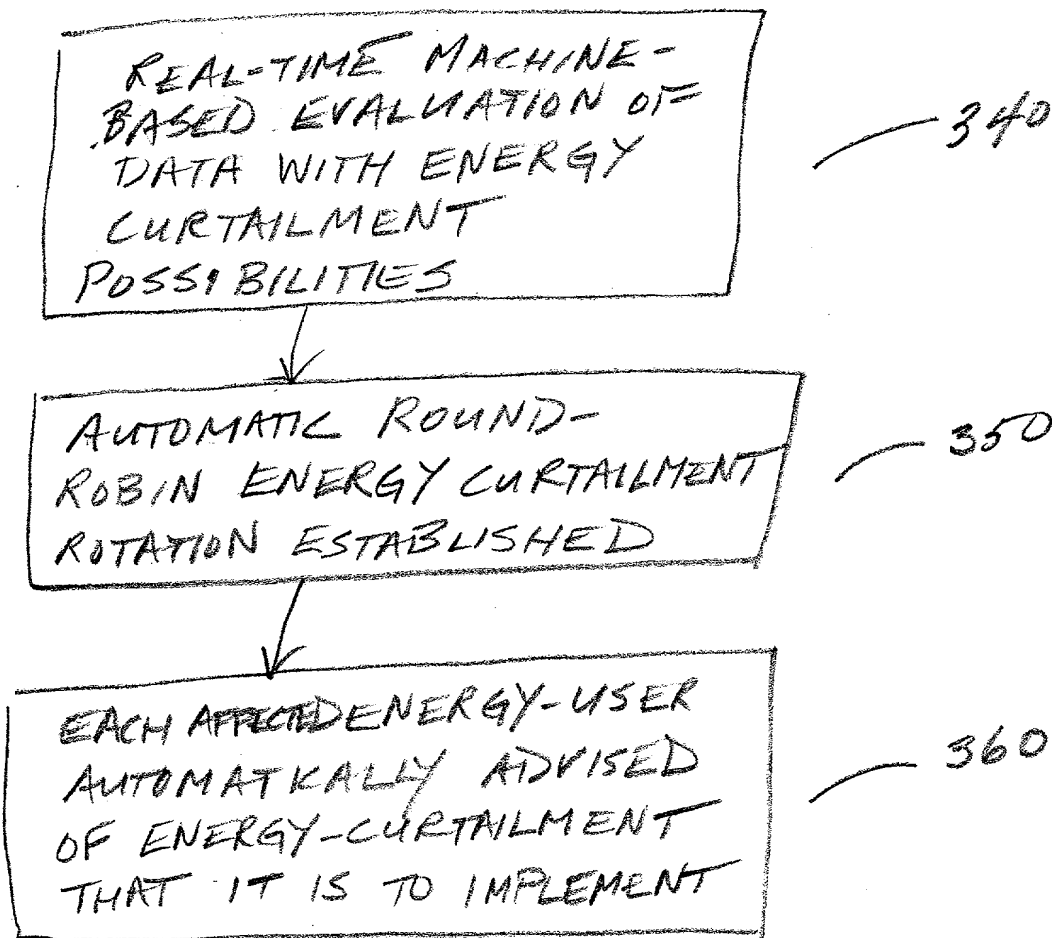 REAL-TIME MACHINE-
BASED EVALUATION OF
DATA WITH ENERGY
CURTAILMENT
POSSIBILITIES
340
AUTOMATIC ROUND-
ROBIN ENERGY CURTAILMENT
ROTATION ESTABLISHED
350
EACH AFFECTED ENERGY-USER
AUTOMATICALLY ADVISED
OF ENERGY-CURTAILMENT
THAT IT IS TO IMPLEMENT
360